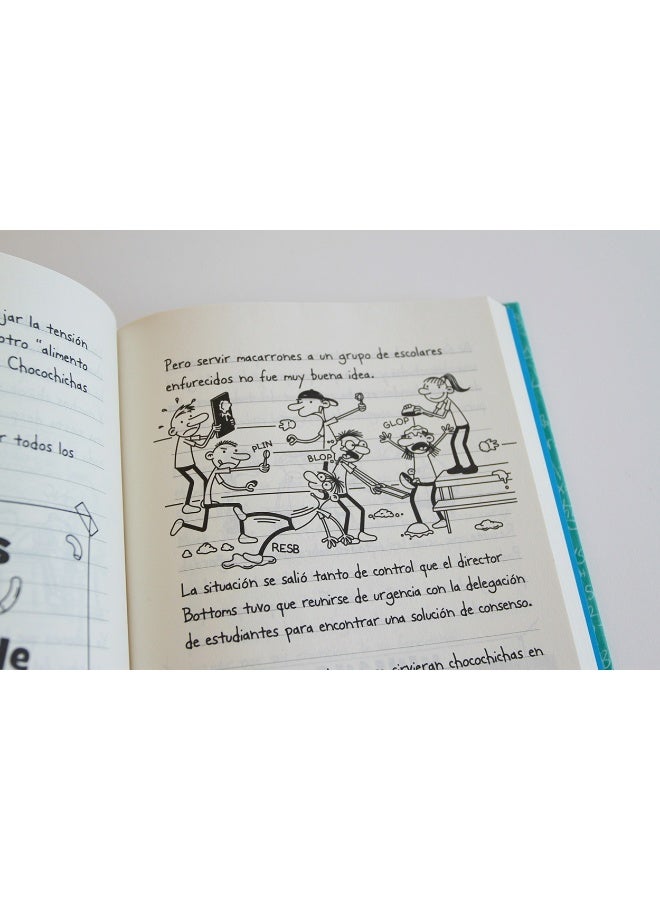 jar la tensión
otro "alimento
Chocochichas
r todos los
s
de
Pero servir macarrones a un grupo de escolares
enfurecidos no fue muy buena idea.
PLIN
BLOP
GLOP
RESB
La situación se salió tanto de control que el director
Bottoms tuvo que reunirse de urgencia con la delegación
de estudiantes para encontrar una solución de consenso.
sirvieran chocochichas en